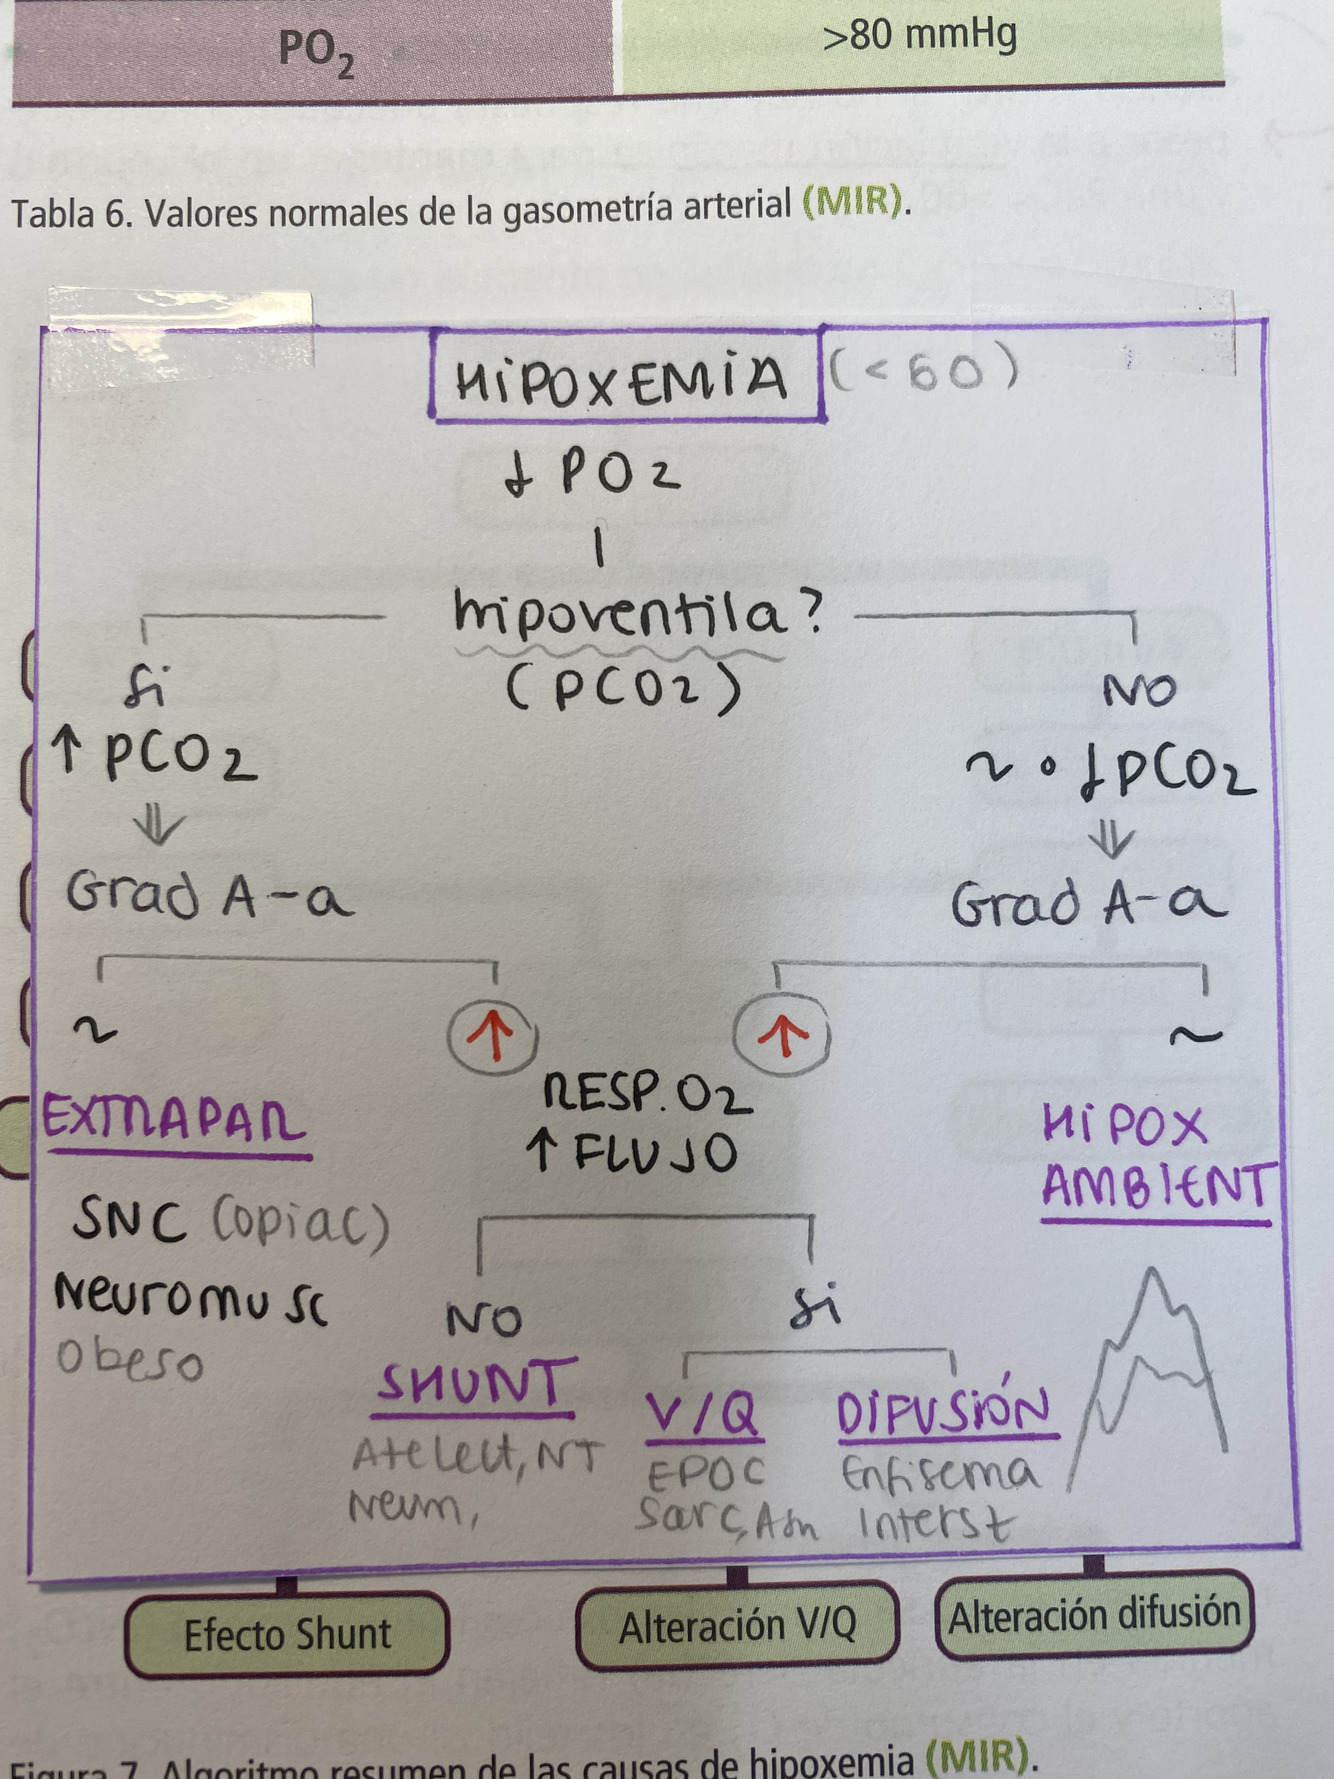 PO2
>80 mmHg
Tabla 6. Valores normales de la gasometría arterial (MIR).
HiPOXEMiA (<60)
↓ PO2
hipoventila?
(PCO2)
Si
NO
↑ PCO2
~ o ↓PCO2
⇓
⇓
Grad A-a
Grad A-a
~
↑
↑
~
EXTRAPAR
RESP. O2
↑ FLUJO
HiPOX
AMBIENT
SNC (opiac)
Neuromusc
Obeso
NO
Si
SHUNT
V/Q
DIFUSIÓN
Atelect, NT
Neum,
EPOC
Sarc, Asm
Enfisema
Interst
Efecto Shunt
Alteración V/Q
Alteración difusión
Figura 7. Algoritmo resumen de las causas de hipoxemia (MIR).